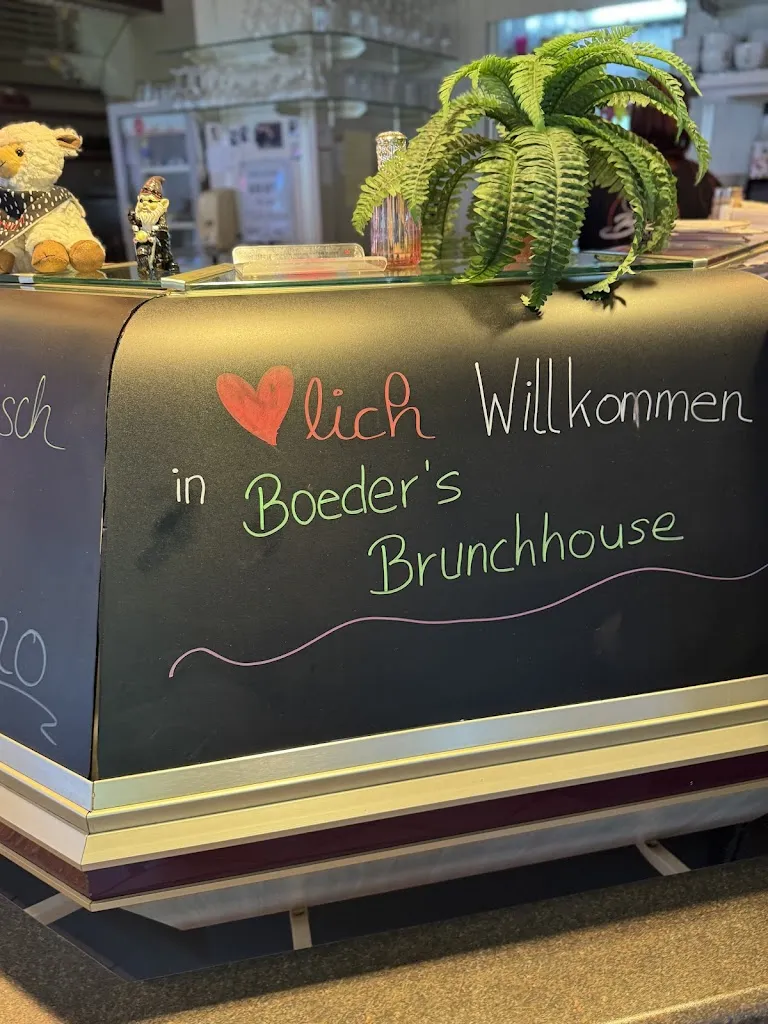 ❤lich Willkommen
in Boeder's
Brunchhouse
sch
20